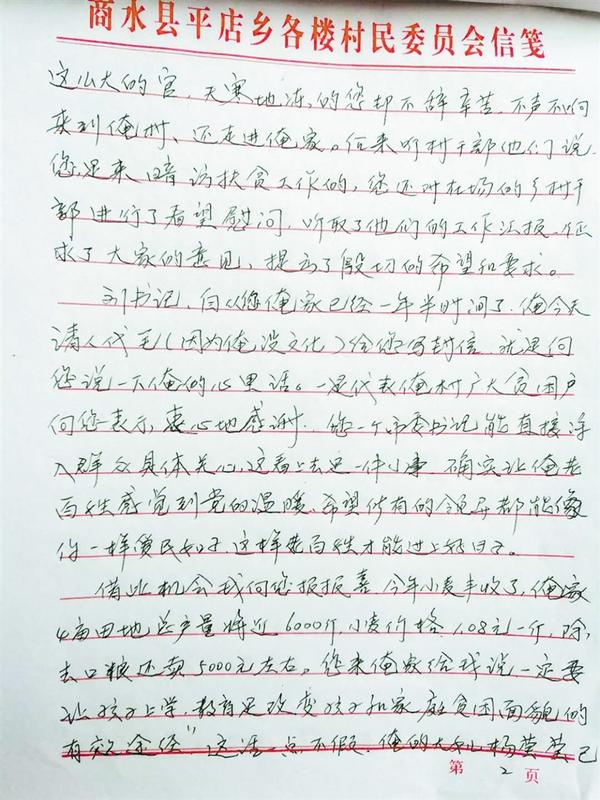 商水县平店乡各楼村民委员会信笺
这么大的官，天寒地冻的您却不辞辛苦，不声不响
来到俺村、还走进俺家。后来听村干部他们说
您是来暗访扶贫工作的，您还对在场的乡村干
部进行了看望慰问，听取了他们的工作汇报，征
求了大家的意见，提出了殷切的希望和要求。
刘书记，自从您俺家已经一年半时间了，俺今天
请人代笔（因为俺没文化）给您写封信，就是向
您说一下俺的心里话。一是代表俺村广大贫困户
向您表示衷心地感谢。您一个市委书记能直接深
入群众具体关心，这看上去是一件小事，确实让俺老
百姓感觉到党的温暖，希望所有的领导都能像
你一样爱民如子，这样老百姓才能过上好日子。
借此机会我向您报报喜，今年小麦丰收了，俺家
4亩田地总产量将近6000斤，小麦价格1.08元一斤，除
去口粮还卖5000元左右。您来俺家给我说一定要
让孩子上学，教育是改变孩子和家庭贫困面貌的
有效途经"这话一点不假，俺的大女儿杨莹莹已
第 2 页